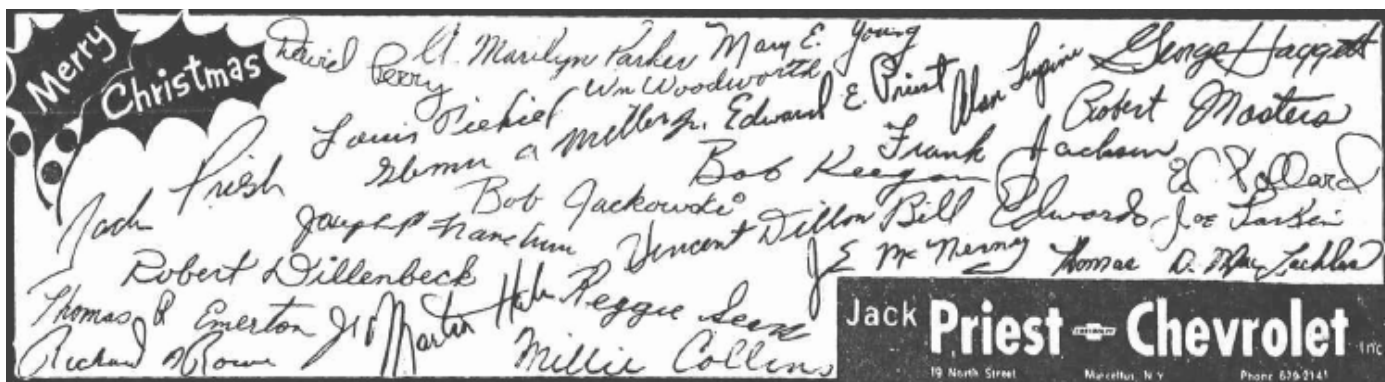 Merry
Christmas
David Perry
A. Marilyn Parker
Mary E. Young
George Haggett
Wm Woodworth
Louis
Miller Jr.
Edward E. Priest
Alan
Robert Masters
Jack Prish
Bob Keegan
Frank Jackson
Ed Pollard
Bob Jackowski
Joseph P
Vincent Dillon
Bill Edwards
Joe Larkin
Robert Dillenbeck
J E McNerney
Thomas D. MacLachlan
Thomas R Emerton Jr
Martin
Reggie
Richard A Rowe
Millie Collins
Jack Priest Chevrolet Inc
19 North Street Marcellus, N.Y. Phone 673-2141